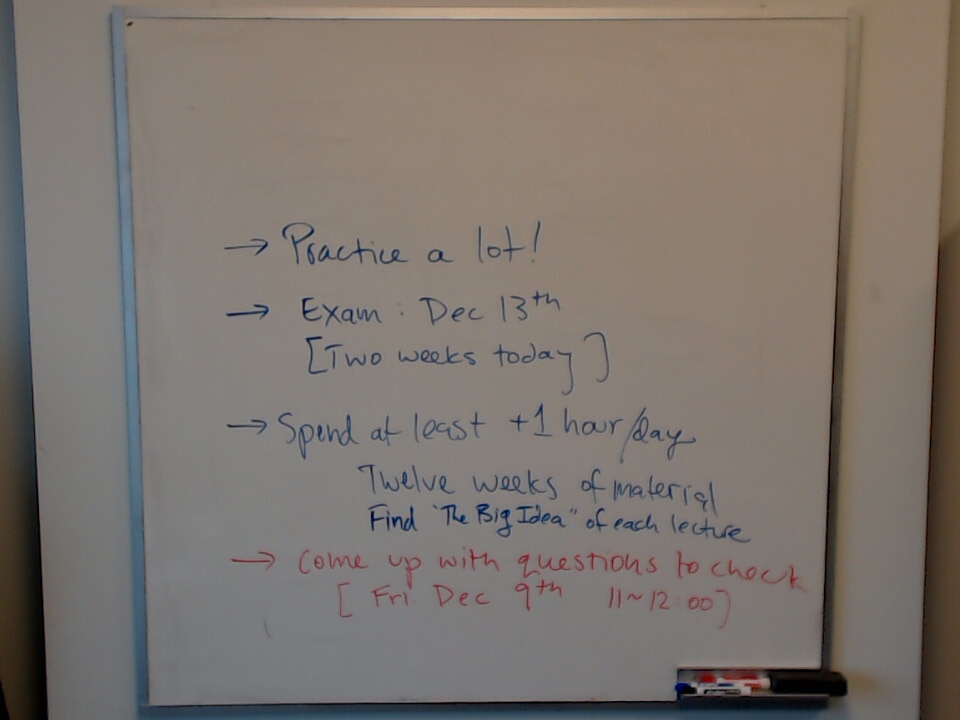 → Practice a lot!
→ Exam : Dec 13th
[Two weeks today]
→ Spend at least +1 hour/day
Twelve weeks of material
Find "The Big Idea" of each lecture
→ Come up with questions to check
[Fri Dec 9th 11~12:00]